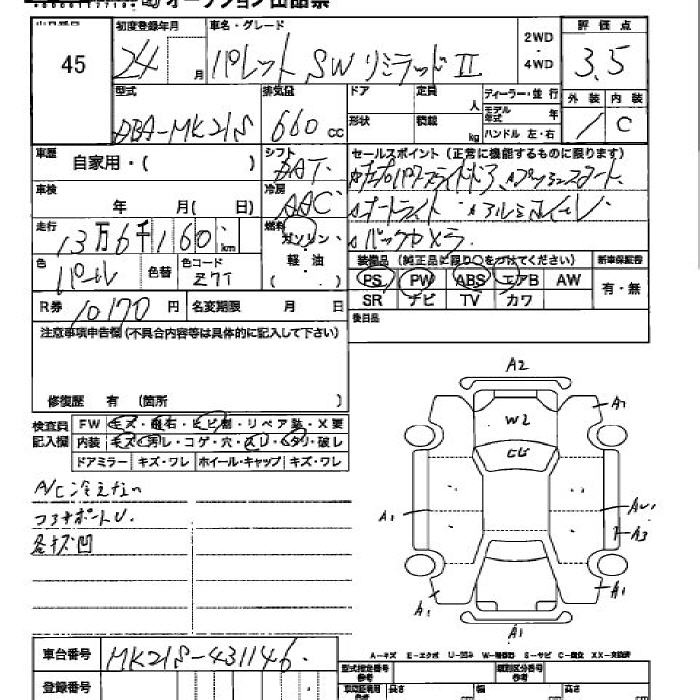 オークション出品票
45
初度登録年月
24 月
車名・グレード
パレット SW リミテッド II
2WD ・ 4WD
評価点
3.5
外装 内装
/ C
型式
DBA-MK21S
排気量
660 cc
ドア
定員 人
形状
積載 kg
ディーラー・並行
モデル年式 年
ハンドル 左・右
車歴
自家用・( )
シフト
AT
セールスポイント (正常に機能するものに限ります)
オートライト アルミホイール
バックカメラ
車検
年 月( 日)
冷房
AAC
走行
13万6千160 km
燃料
ガソリン・
軽・油
( ・ )
色
パール
色替
色コード
Z7T
装備品 (純正品に限り○をつけてください)
PS PW ABS エアB AW
SR ナビ TV カワ
新車保証書
有・無
R券 10170 円
名変期限 月 日
後日品
注意事項申告欄(不具合内容等は具体的に記入して下さい)
修復歴 有 (箇所 )
検査員記入欄
FW
内装
ドアミラー キズ・ワレ ホイール・キャップ キズ・ワレ
A/C冷えない
A2
A1
W2
A1
A3
A1
A1
A1
車台番号
MK21S-431146
登録番号
A-キズ E-エクボ U-凹み S-サビ XX-交換済
型式指定番号 参考
類別区分番号 参考
長さ cm 幅 cm 高さ cm